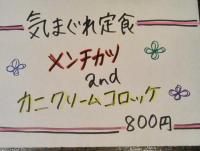 気まぐれ定食
メンチカツ
and
カニクリームコロッケ
800円